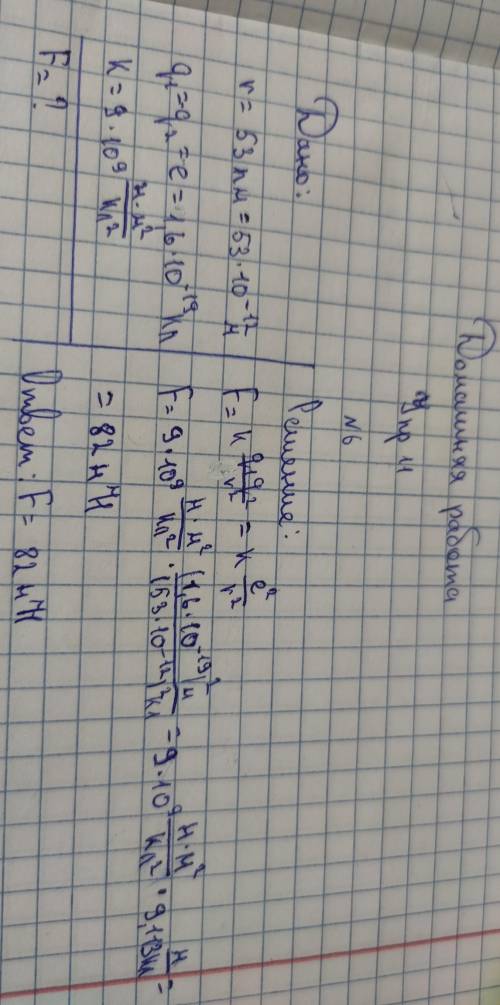 Домашняя работа
Упр 11
№6
Дано:
r = 53 пм = 53 · 10⁻¹² м
q₁ = q₂ = e = 1,6 · 10⁻¹⁹ Кл
k = 9 · 10⁹ Н·м²/Кл²
F = ?
Решение:
F = k q₁q₂/r² = k e²/r²
F = 9 · 10⁹ Н·м²/Кл² · (1,6 · 10⁻¹⁹)²м/(53 · 10⁻¹²)²Кл = 9 · 10⁹ Н·м²/Кл² ·
= 82 нН
Ответ: F = 82 нН